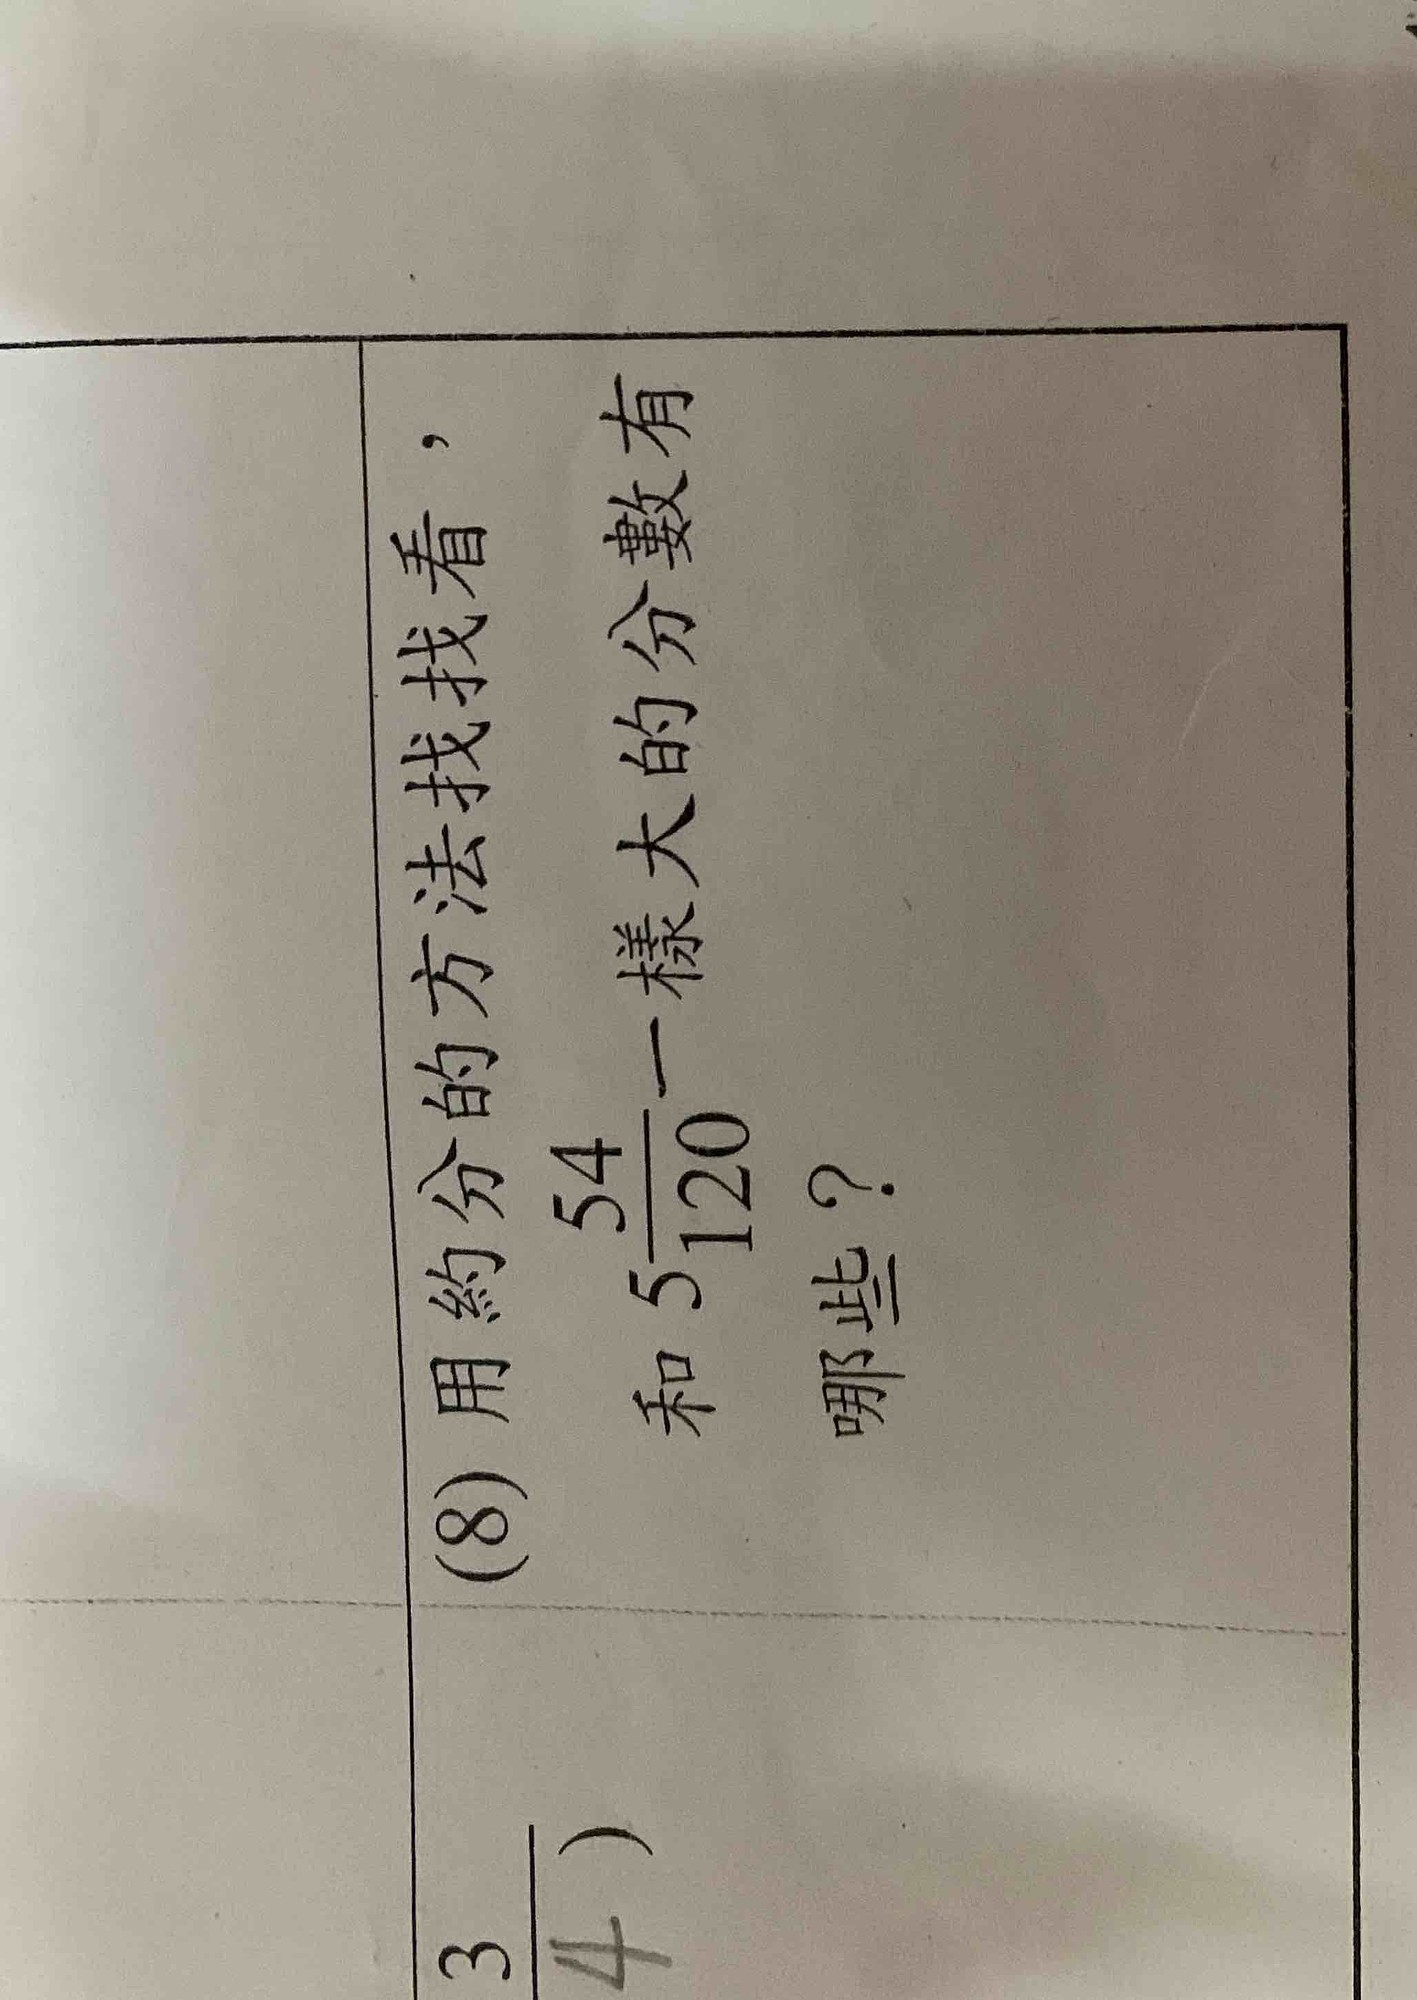 (8) 用約分的方法找找看，
和 5 54/120 一樣大的分數有
哪些？
3
4 )